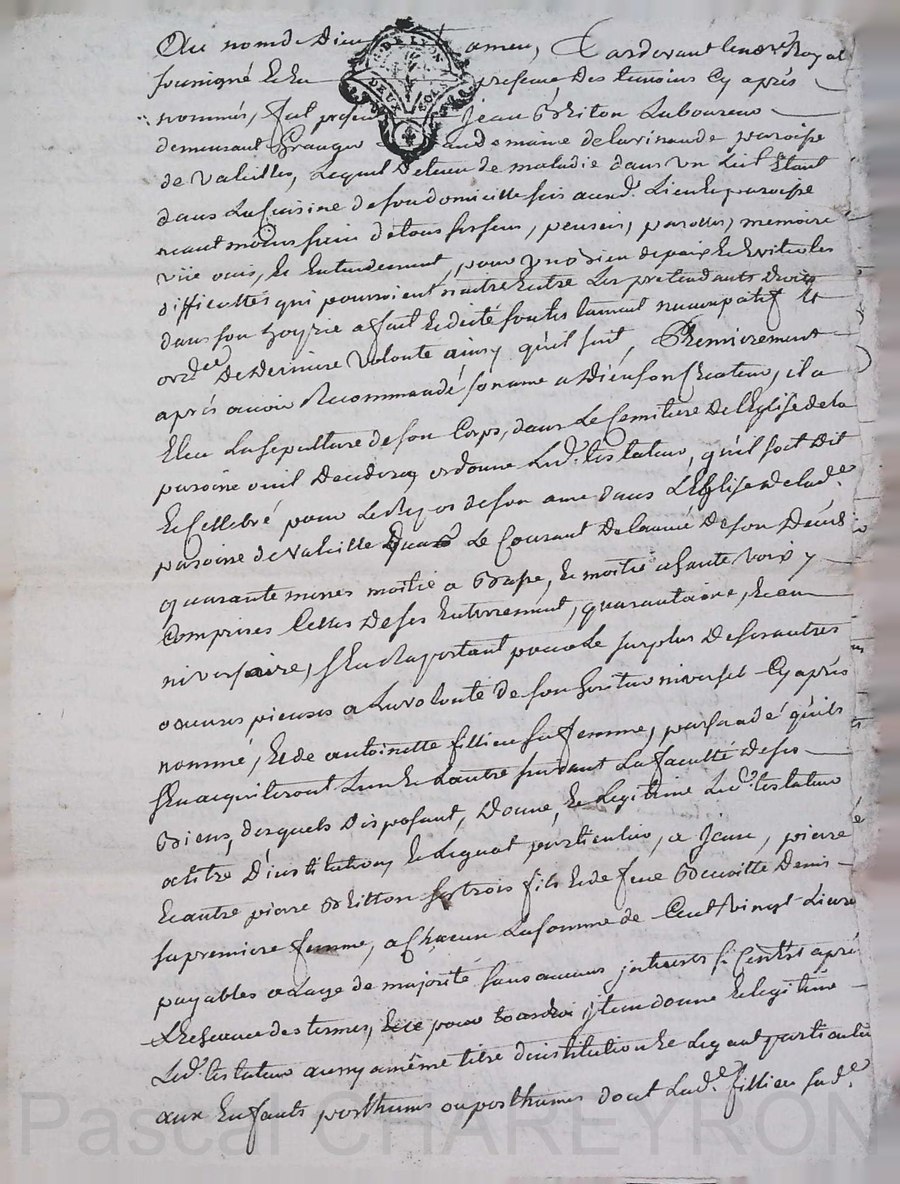 Au nom de Dieu amen, Pardevant le no.re Royal
soussigné et en presence des temoins cy apres
DE LYON
DEUX SOLS
nommés, fut present Jean Briton Laboureur
demeurant Granger au domaine de la rinaude, paroisse
de Valeilles, Lequel Detenu de maladie dans un Lict Etant
dans La Cuisine de son domicille sis aud. Lieu et paroisse
neantmoins sain de tous ses sens, pensées, paroles, memoire
vüe ouie, et Entendement, pour un bien de paix et Eviter les
difficultés qui pourroient naitre Entre Les pretendants droits
dans son hoyrie a fait et dicté son testament nuncupatif et
ord.ce De Derniere Volonté ainsy qu'il suit, Premierement
aprés avoir Recommandé son ame a Dieu son Createur, il a
Eleu La sepulture de son Corps, dans Le Cemitiere de l'Eglise de la
paroisse ou il Decedera, ordonne Led. testateur, qu'il soit Dit
et Cellebré pour Le Repos de son ame dans L'Eglise de lad.e
paroisse de Valeille Le Courant de l'année de son Décés
quarante messes moitié a Basse, et moitié a haute Voix y
Comprises Celles de ses Enterrement, quarantaine, et an
niversaire, s'En Raportant pour Le surplus de ses autres
oeuvres pieuses a La volonté de son heritier universel Cy aprés
nommé, et de antoinette fillieu sa femme, persuadé qu'ils
s'En acquiteront L'un et L'autre suivant La faculté de ses
Biens, desquels Disposant, Donne, et Legitime Led. testateur
a titre D'institution, et Legat particulier, a Jean, pierre
et autre pierre Britton ses trois fils et de feue Benoitte Denis
sa premiere femme, a Chacun La somme de Cent Vingt Livres
payables a L'age de majorité sans aucuns interests si ce n'Est aprés
L'Echeance des termes, item donne et legitime
Led. testateur aussy a même titre d'institution et Legat particulier
aux Enfants posthumes ou posthumes dont Lad.e fillieu sad.e
Pascal CHAREYRON